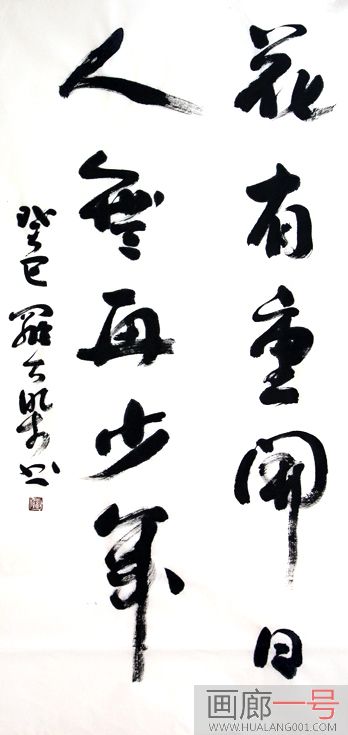 花有重開日
人無再少年
癸巳 羅
书
画廊一号
WWW.HUALANG001.COM